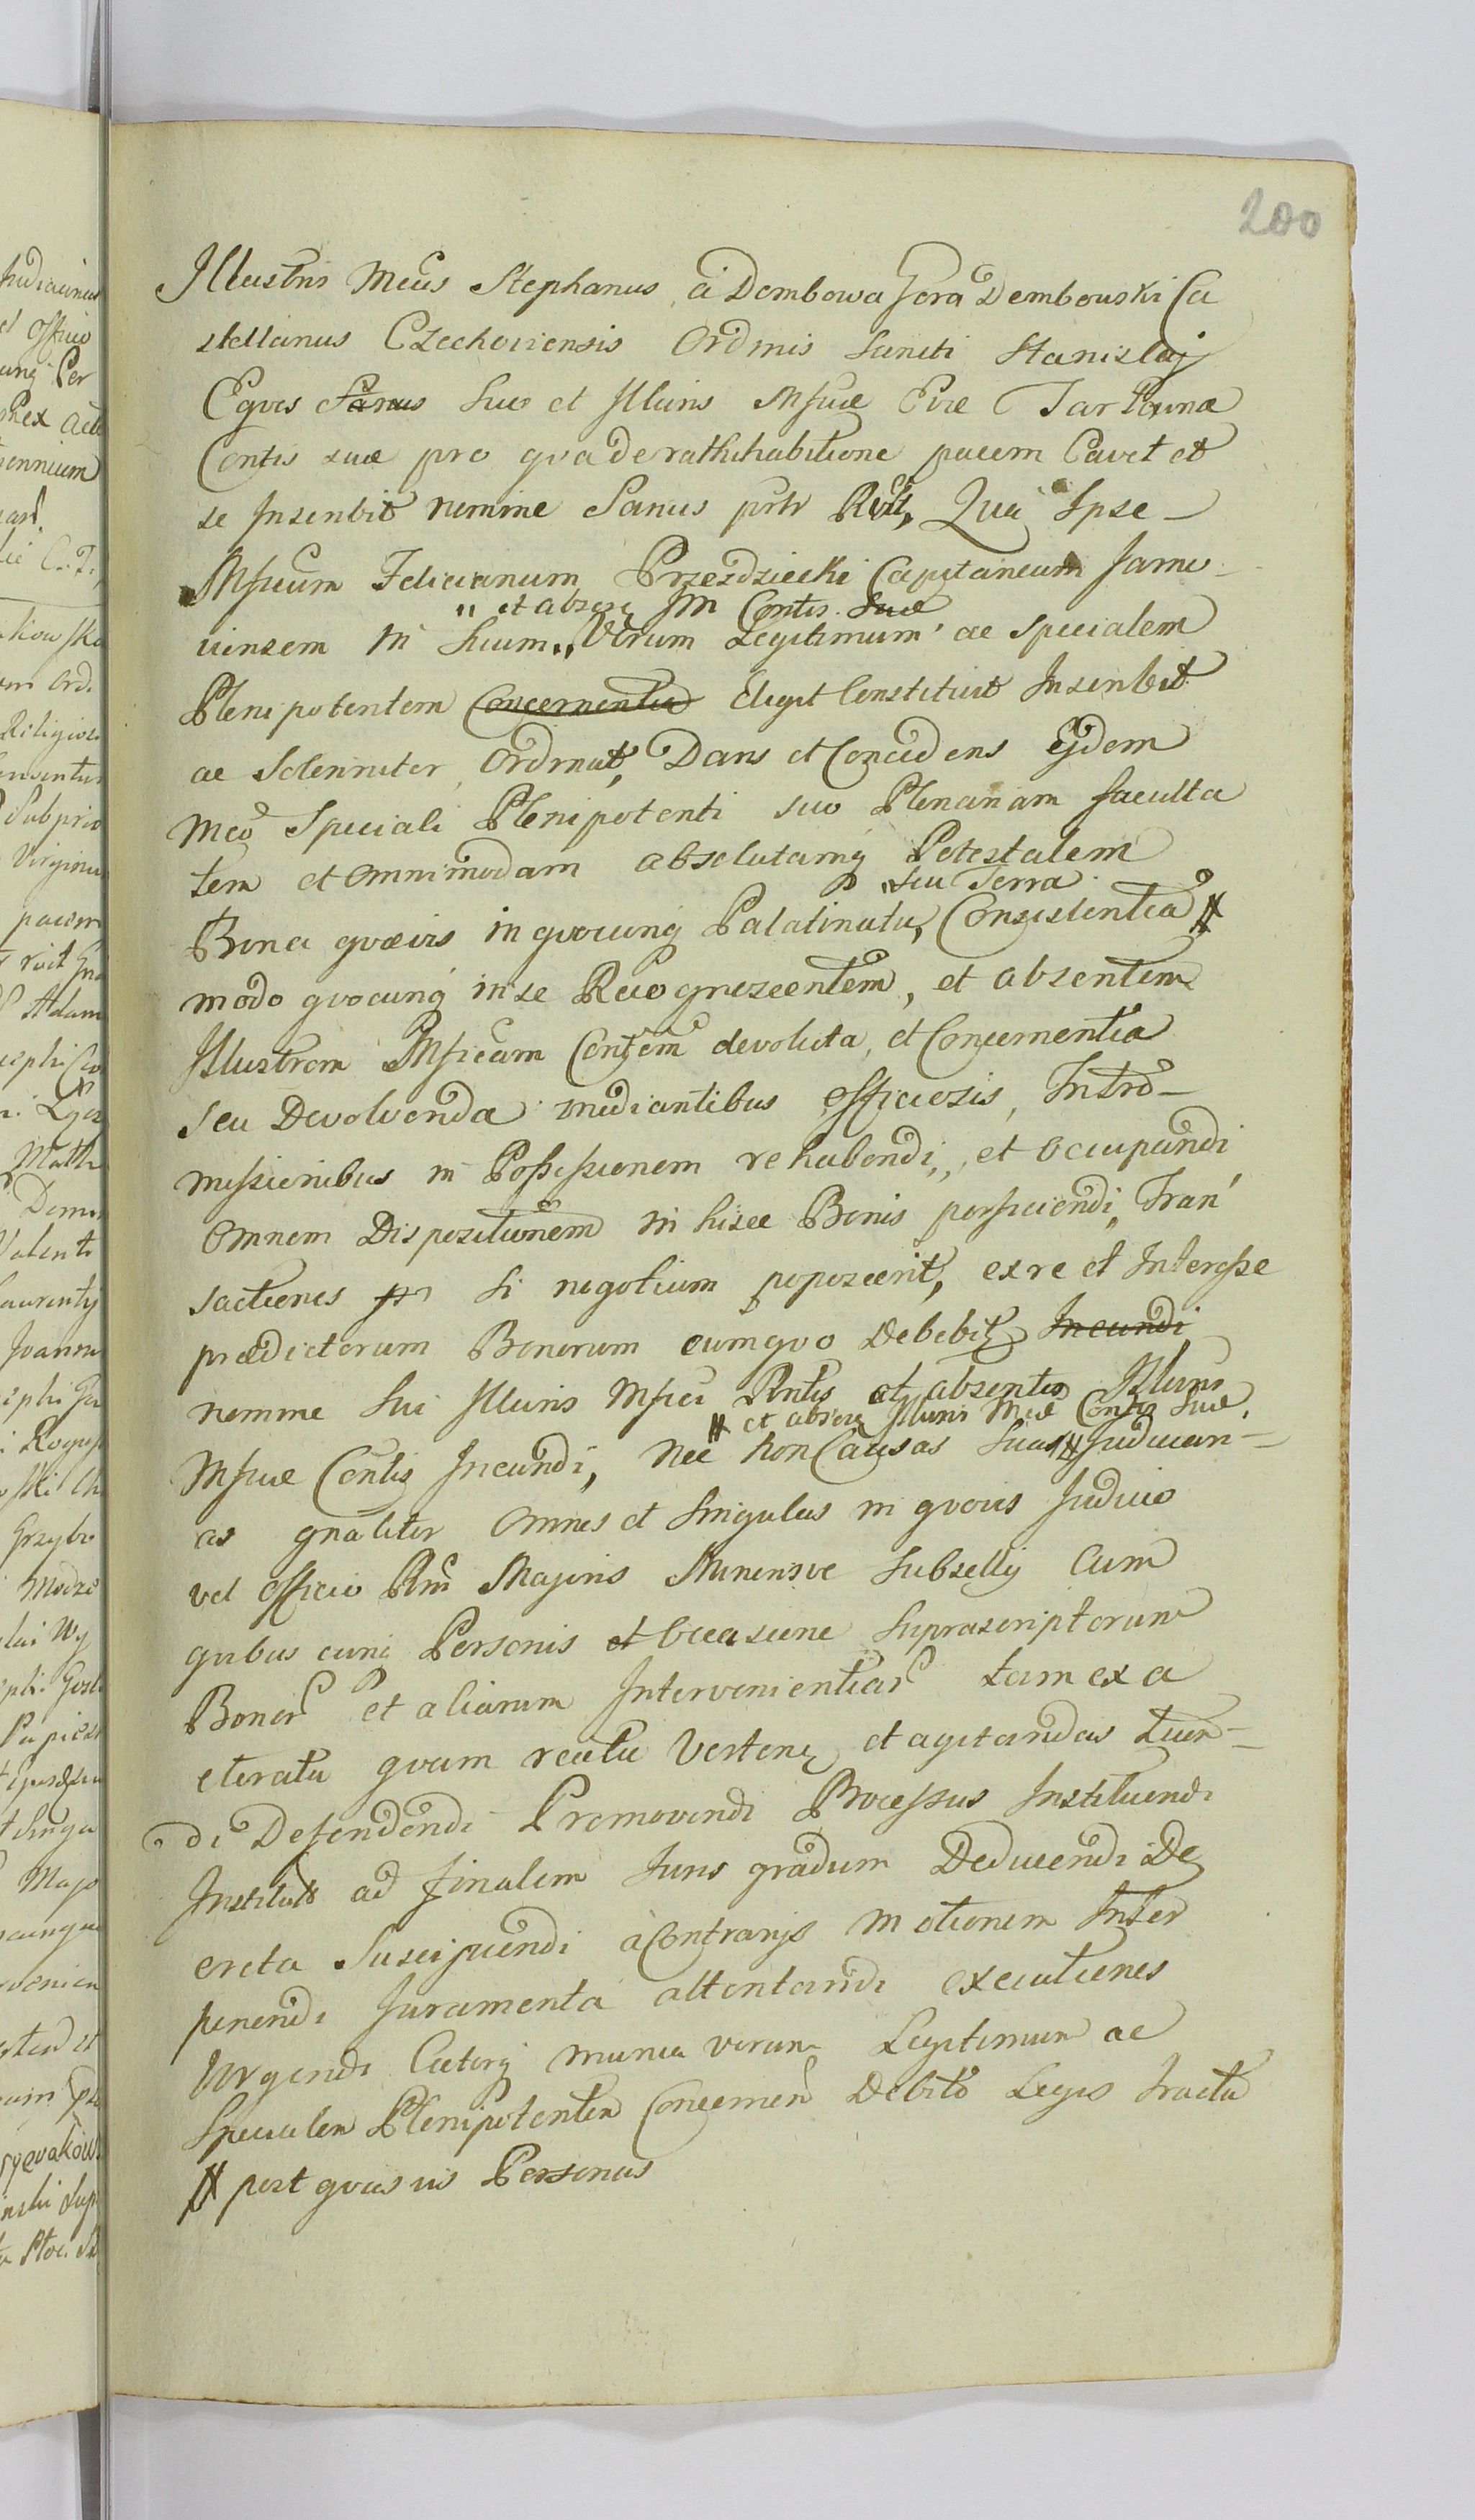 200
Illustris Mcus Stephanus à Dembowa Gora Dembowski Ca
stellanus Czechoviensis Ordinis Sancti Stanislaj
Eqves Sanus Suo et Illuris Mficæ Evæ Tarłowna
Contis suæ pro qva de rathihabitione pacem Cavet et
se Inscribit nomine Sanus prtr Rcts, Qui Ipse –
Mficum Felicianum Przezdziecki Capitaneum Jamo
„ et absque Im Contis suæ
viensem in Suum „ Verum Legitimum ac specialem
Plenipotentem Concernentia Elegit Constituit Inscribit
ac Solenniter Ordinat, Dans et Concedens Ejdem
Mco Speciali Plenipotenti suo Plenariam faculta
tem et omnimodam absolutamq Potestatem
„ seu Terra
Bona qvævis in qvocunq Palatinatu, Consistentia #
modo qvocunq in se Recognoscentem, et absentem
Illustrem Mficam Contem devoluta, et Concernentia
seu Devolvenda mediantibus officiosis, Intro –
missionibus in Possessionem rehabendi, et occupandi
Omnem Dispozitionem in hisce Bonis perficiendi, Tran
sactiones si negotium poposcerit, ex re et Interesse
prædictorum Bonorum cumqvo Debebit Ineundi
nomine Sui Illuris Mfici Rntis et absentis Illuris
# et absque Illuris Mcæ Contis Suæ,
Mficæ Contis Ineundi, Nec non Causas Suas # Judician –
as gnaliter Omnes et Singulas in qvovis Judicio
vel officio Rni Majoris Minorisve Subsellij Cum
qvibus cunq Personis et Occasione Suprascriptorum
Bonor et aliarum Intervenientiar tam ex a
cteratu qvam reatu Verten et agitandas tuen –
di Defendendi Promovendi Processus Instituendi
Institut ad finalem Juris gradum Deducendi De
creta Suscipiendi à Contrarijs Motionem Inter
ponendi Juramenta attentandi executiones
Urgendi Cæteraq munia verum Legitimum ac
Specialem Plenipotentem Concernen Debito Legis tractu
# post qvasvis Personas